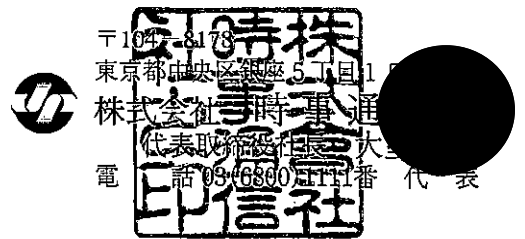 〒104-8178
東京都中央区銀座5丁目1
株式会社 時事通
代表取締役社長 大
電 話 03(6800)1111番 代 表
株式會社時事通信社印